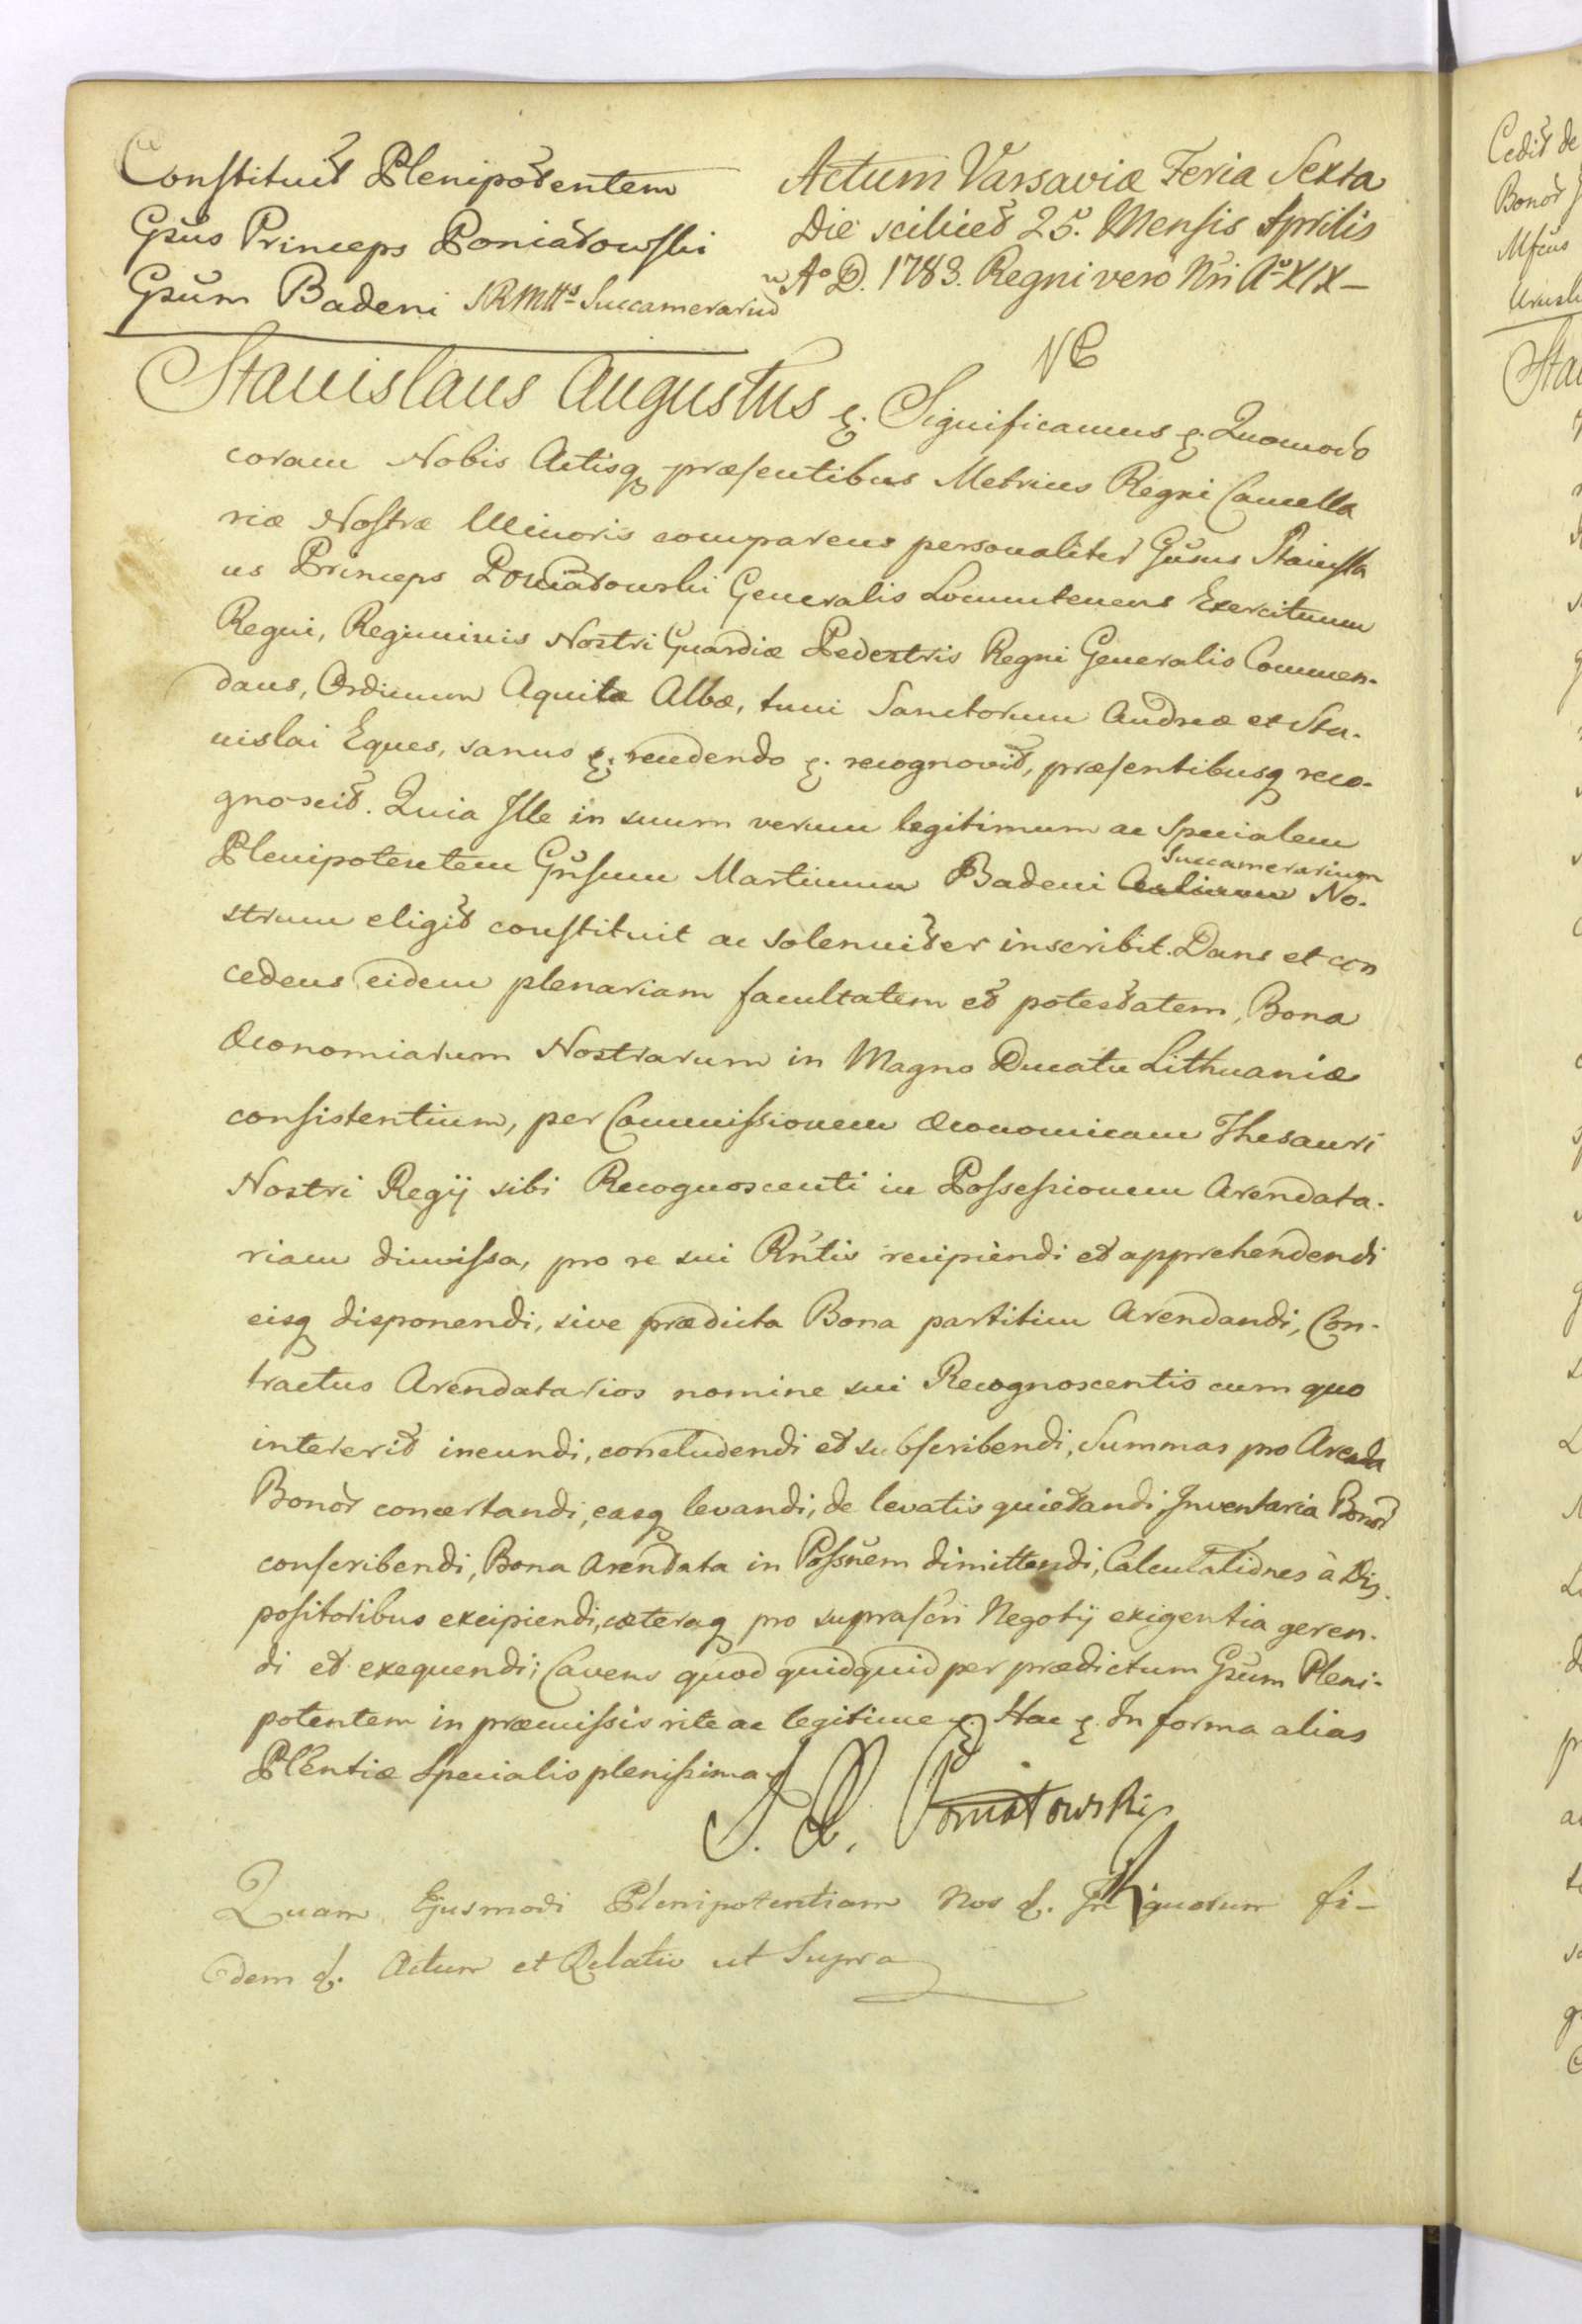 Constituit Plenipotentem
Gsus Princeps Poniatowski
Gsum Badeni SRMttis Succamerariũ
Actum Varsaviæ Feria Sexta
Die scilicet 25. Mensis Aprilis
Aº D. 1783. Regni vero Nri Aº XIX-
Stanislaus Augustus &. Significamus &. Quomodo
coram Nobis Actisq præsentibus Metrices Regni Cancella
riæ Nostræ Minoris comparens personaliter Gsus Stanisla
us Princeps Poniatowski Generalis Locumtenens Exercituum
Regni, Regiminis Nostri Guardiæ Pedestris Regni Generalis Commen-
dans, Ordinum Aquilæ Albæ, tum Sanctorum Andreæ et Sta-
nislai Eques, sanus &. recedendo &. recognovit, præsentibusq reco-
gnoscit. Quia Ille in suum verum legitimum ac Specialem
Plenipotentem Gnsum Martinum Badeni Succamerarium No-
strum eligit constituit ac solenniter inscribit. Dans et con
cedens eidem plenariam facultatem et potestatem, Bona
Œconomiarum Nostrarum in Magno Ducatu Lithuaniæ
consistentium, per Commissionem Œconomicam Thesauri
Nostri Regij sibi Recognoscenti in Possessionem Arendata-
riam dimissa, pro re sui Rntis recipiendi et apprehendendi
eisq disponendi, sive prædicta Bona partitim Arendandi, Con-
tractus Arendatarios nomine sui Recognoscentis cum quo
intererit ineundi, concludendi et subscribendi, Summas pro Arenda
Bonor concertandi, easq levandi, de levatis quietandi, Inventaria Bonor
conscribendi, Bona Arendata in Possnem dimittendi, Calculationes à Dis-
positoribus excipiendi, cæteraq pro suprascri Negotij exigentia geren-
di et exequendi; Cavens quod quidquid per prædictum Gsum Pleni-
potentem in præmissis rite ac legitime &. Hac &. In forma alias
Plentiæ Specialis plenissima
S. P. Poniatowski
Quam Ejusmodi Plenipotentiam Nos &. In quorum fi-
dem &. Actum et Relatio ut Supra
Cedit de
Bonor
Sta